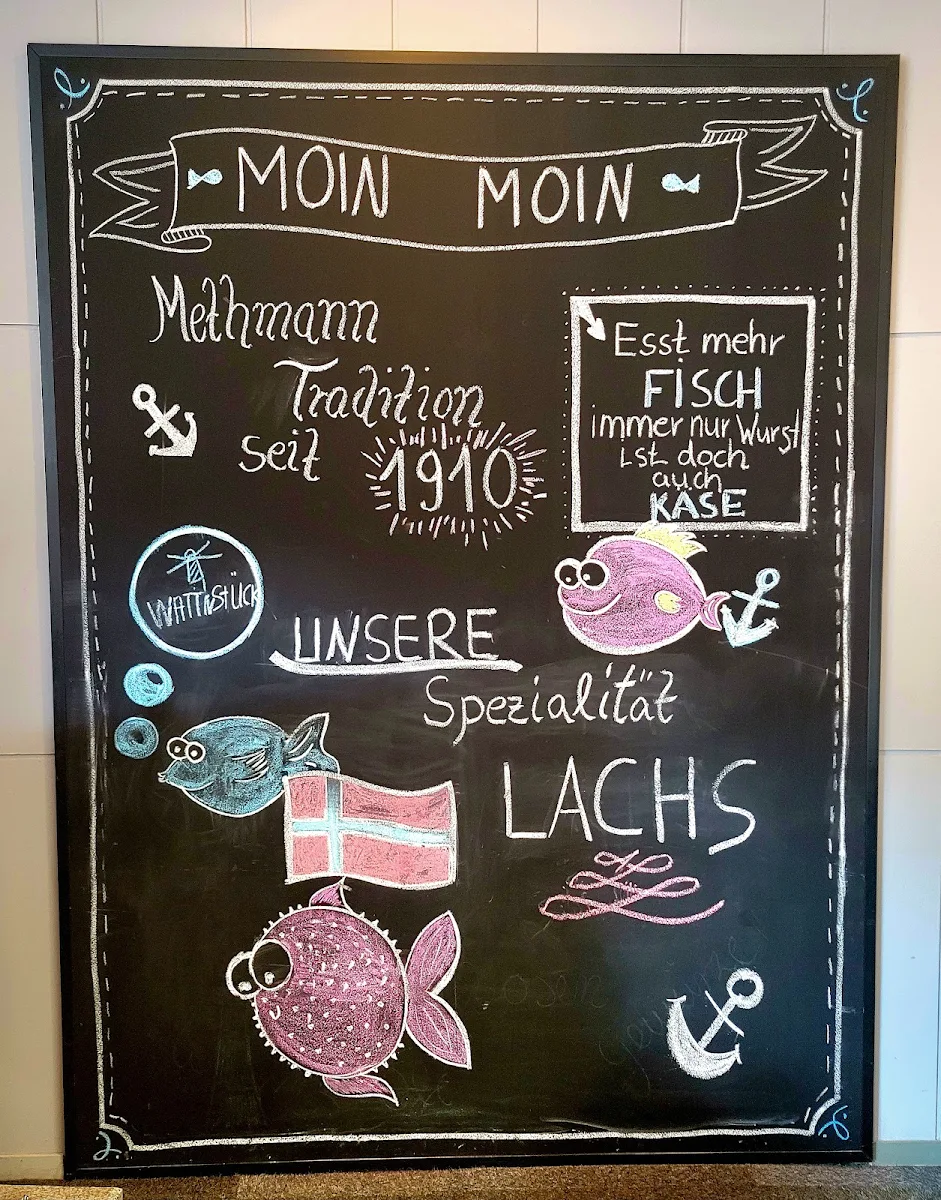 MOIN MOIN
Methmann
Tradition
seit
1910
Esst mehr
FiSCH
immer nur Wurst
ist doch
auch
KÄSE
WATTNSTÜCK
UNSERE
Spezialität
LACHS